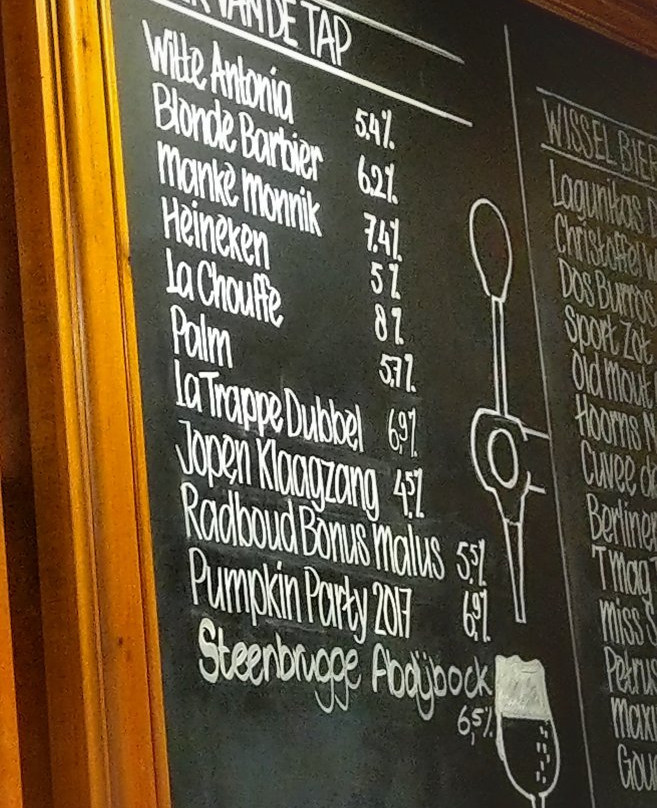 VAN DE TAP
Witte Antonia 5.4%
Blonde Barbier 6.2%
Manke Monnik 7.4%
Heineken 5%
La Chouffe 8%
Palm 5,7%
La Trappe Dubbel 6,9%
Jopen Klaagzang 4,5%
Radboud Bonus Malus 5,5%
Pumpkin Party 2017 6,9%
Steenbrugge Abdijbock
6,5%
WISSEL BIER
Lagunitas
Christoffel
Dos Burros
Sport Zot
Old Mout
Hoorns
Cuvee
Berliner
Tmag
Miss
Petrus